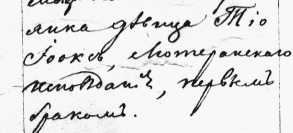 лика дѣвица Тіо
Іоокъ, лютеранскаго
исповѣданія, первымъ
бракомъ.